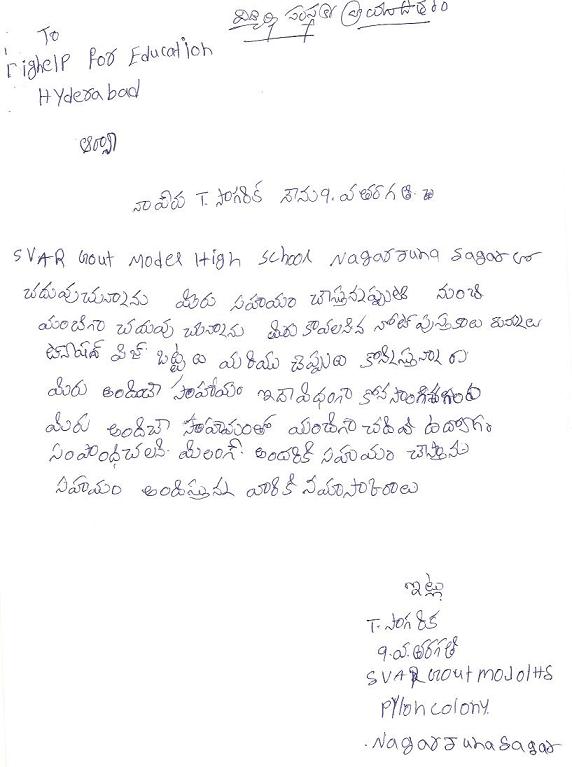 To
righelp For Education
Hyderabad
ఆర్యా
నా పేరు T. సాగరిక నేను 9. వ తరగతి.
SVAR Gout Model High School Nagarjuna Sagar లో
చదువుచున్నాను మీరు సహాయం చేస్తునప్పటి నుంచి
మంచిగా చదువు చున్నాను మీకు కావలసిన నోట్ పుస్తకాలు
ఫీజ్ బట్టలు మరియు చెప్పులు కొనిస్తున్నారు
మీరు అందించె సహాయం ఇదావిధంగా కొనసాగించగలరు
మీరు అందించె సహాయంతో మంచిగా చదివి ఉదోగం
సంపాధించలని. అందరికి సహయం చేస్తను
సహాయం అందిస్తును వారికి నమాసాకరాలు
ఇట్లు
T. సాగరిక
9. వ. తరగతి
SVAR Gout Model HS
Pylon colony.
Nagarjuna Sagar